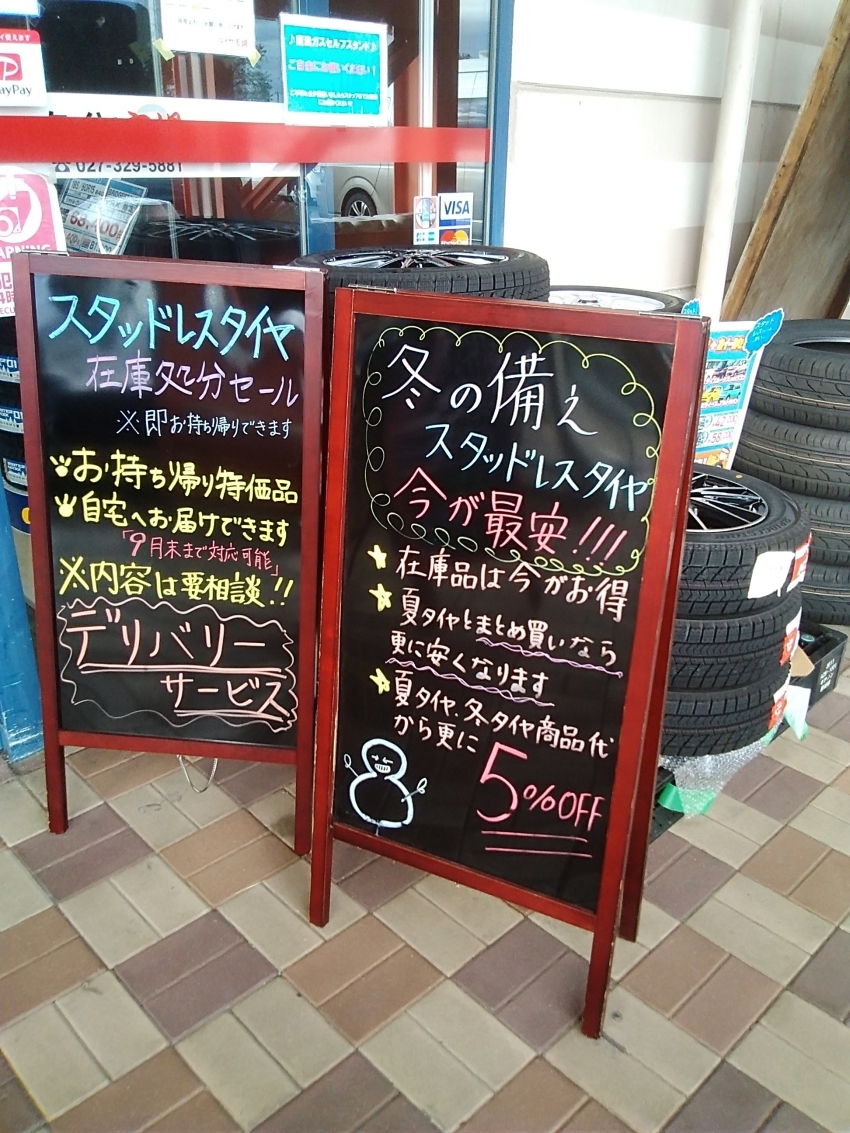 PayPay
♪直営ガスセルフスタンド♪
☎027-329-5881
VISA
スタッドレスタイヤ
在庫処分セール
※即お持ち帰りできます
お持ち帰り特価品
自宅へお届けできます
「9月末まで対応可能」
※内容は要相談!!
デリバリー
サービス
冬の備え
スタッドレスタイヤ
今が最安!!!
★在庫品は今がお得
★夏タイヤとまとめ買いなら
更に安くなります
★夏タイヤ、冬タイヤ商品代
から更に
5%OFF